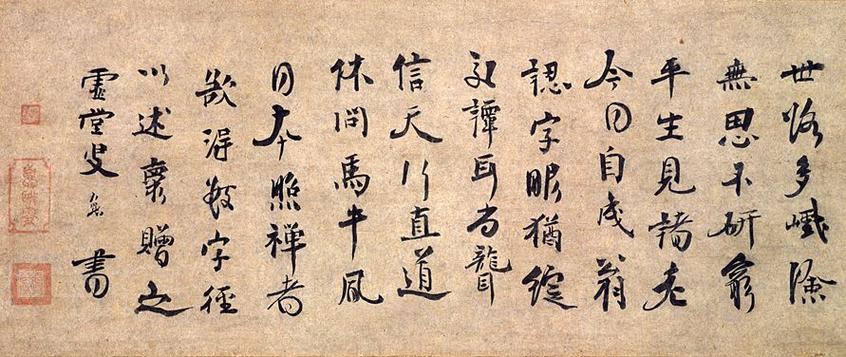 世路多巇嶮
無思不研窮
平生見諸老
今日自成翁
認字眼猶綻
交譚耳尚聾
信天行直道
休問馬牛風
日本照禅者
欲得數字徑
以述懷贈之
虛堂叟書